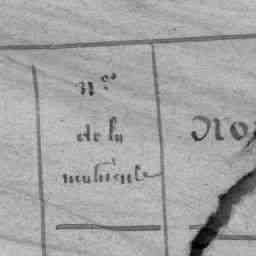 N.os
de la
matricule
No